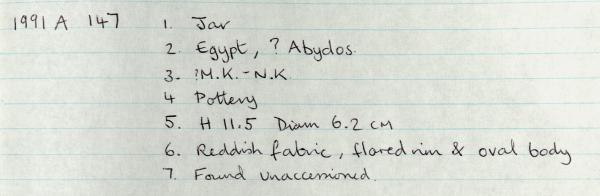 1991 A 147 1. Jar
2. Egypt, ? Abydos.
3. ?M.K. - N.K.
4 Pottery
5. H 11.5 Diam 6.2 CM
6. Reddish fabric, flared rim & oval body
7. Found unaccessioned.